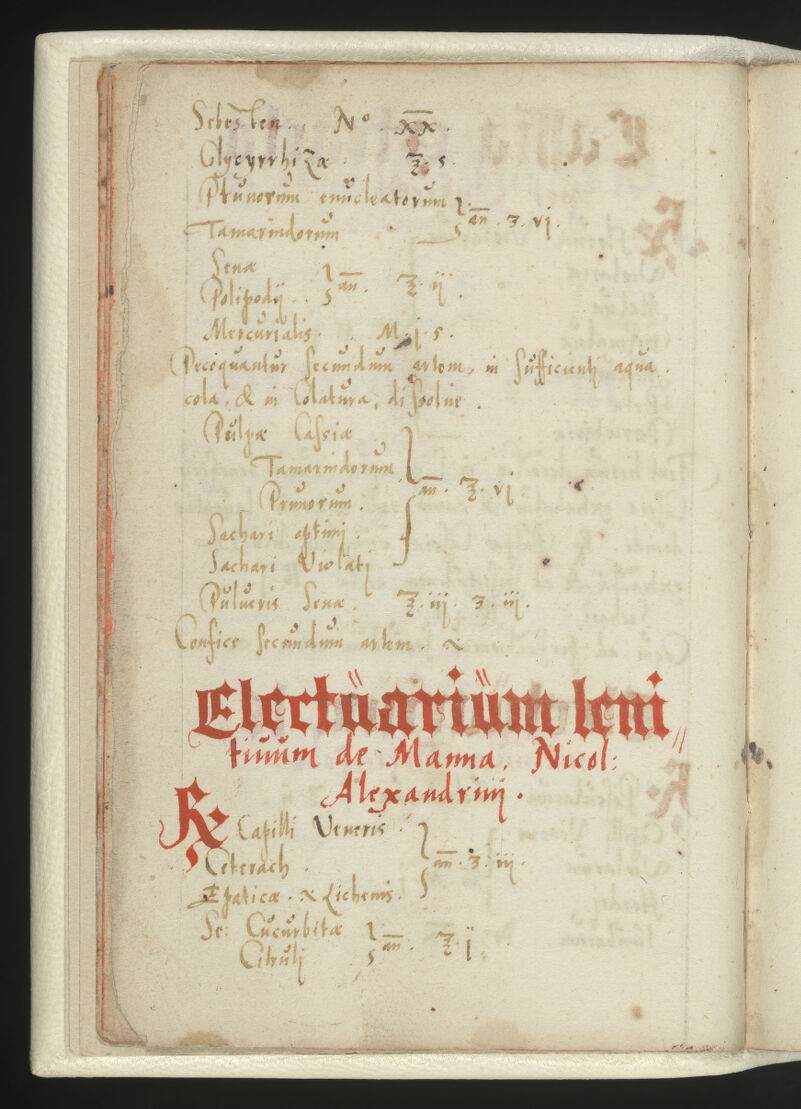 Sebesten. N° . xx .
Glycyrrhizæ . ℥. s .
Prunorum enucleatorum
Tamarindorum } an . ʒ. vj .
Senæ
Polipodij . } an . ℥. ij .
Mercurialis . M. j. s .
Decoquantur secundum artem, in sufficienti aqua .
cola, & in Colatura, dissolue .
Pulpæ Cassiæ
Tamarindorum
Prunorum . } an . ℥. vj
Sachari optimi .
Sachari Violati
Pulueris Senæ . ℥. iij . ʒ. iij .
Confice secundum artem .
Electüariüm leni„
tiuum de Manna, Nicol:
Alexandrinj .
℞ Capilli Veneris .
Ceterach . } an . ʒ. iij .
Epaticæ . Lichenis .
Se: Cucurbitæ
Citrulj } an . ℥. j .